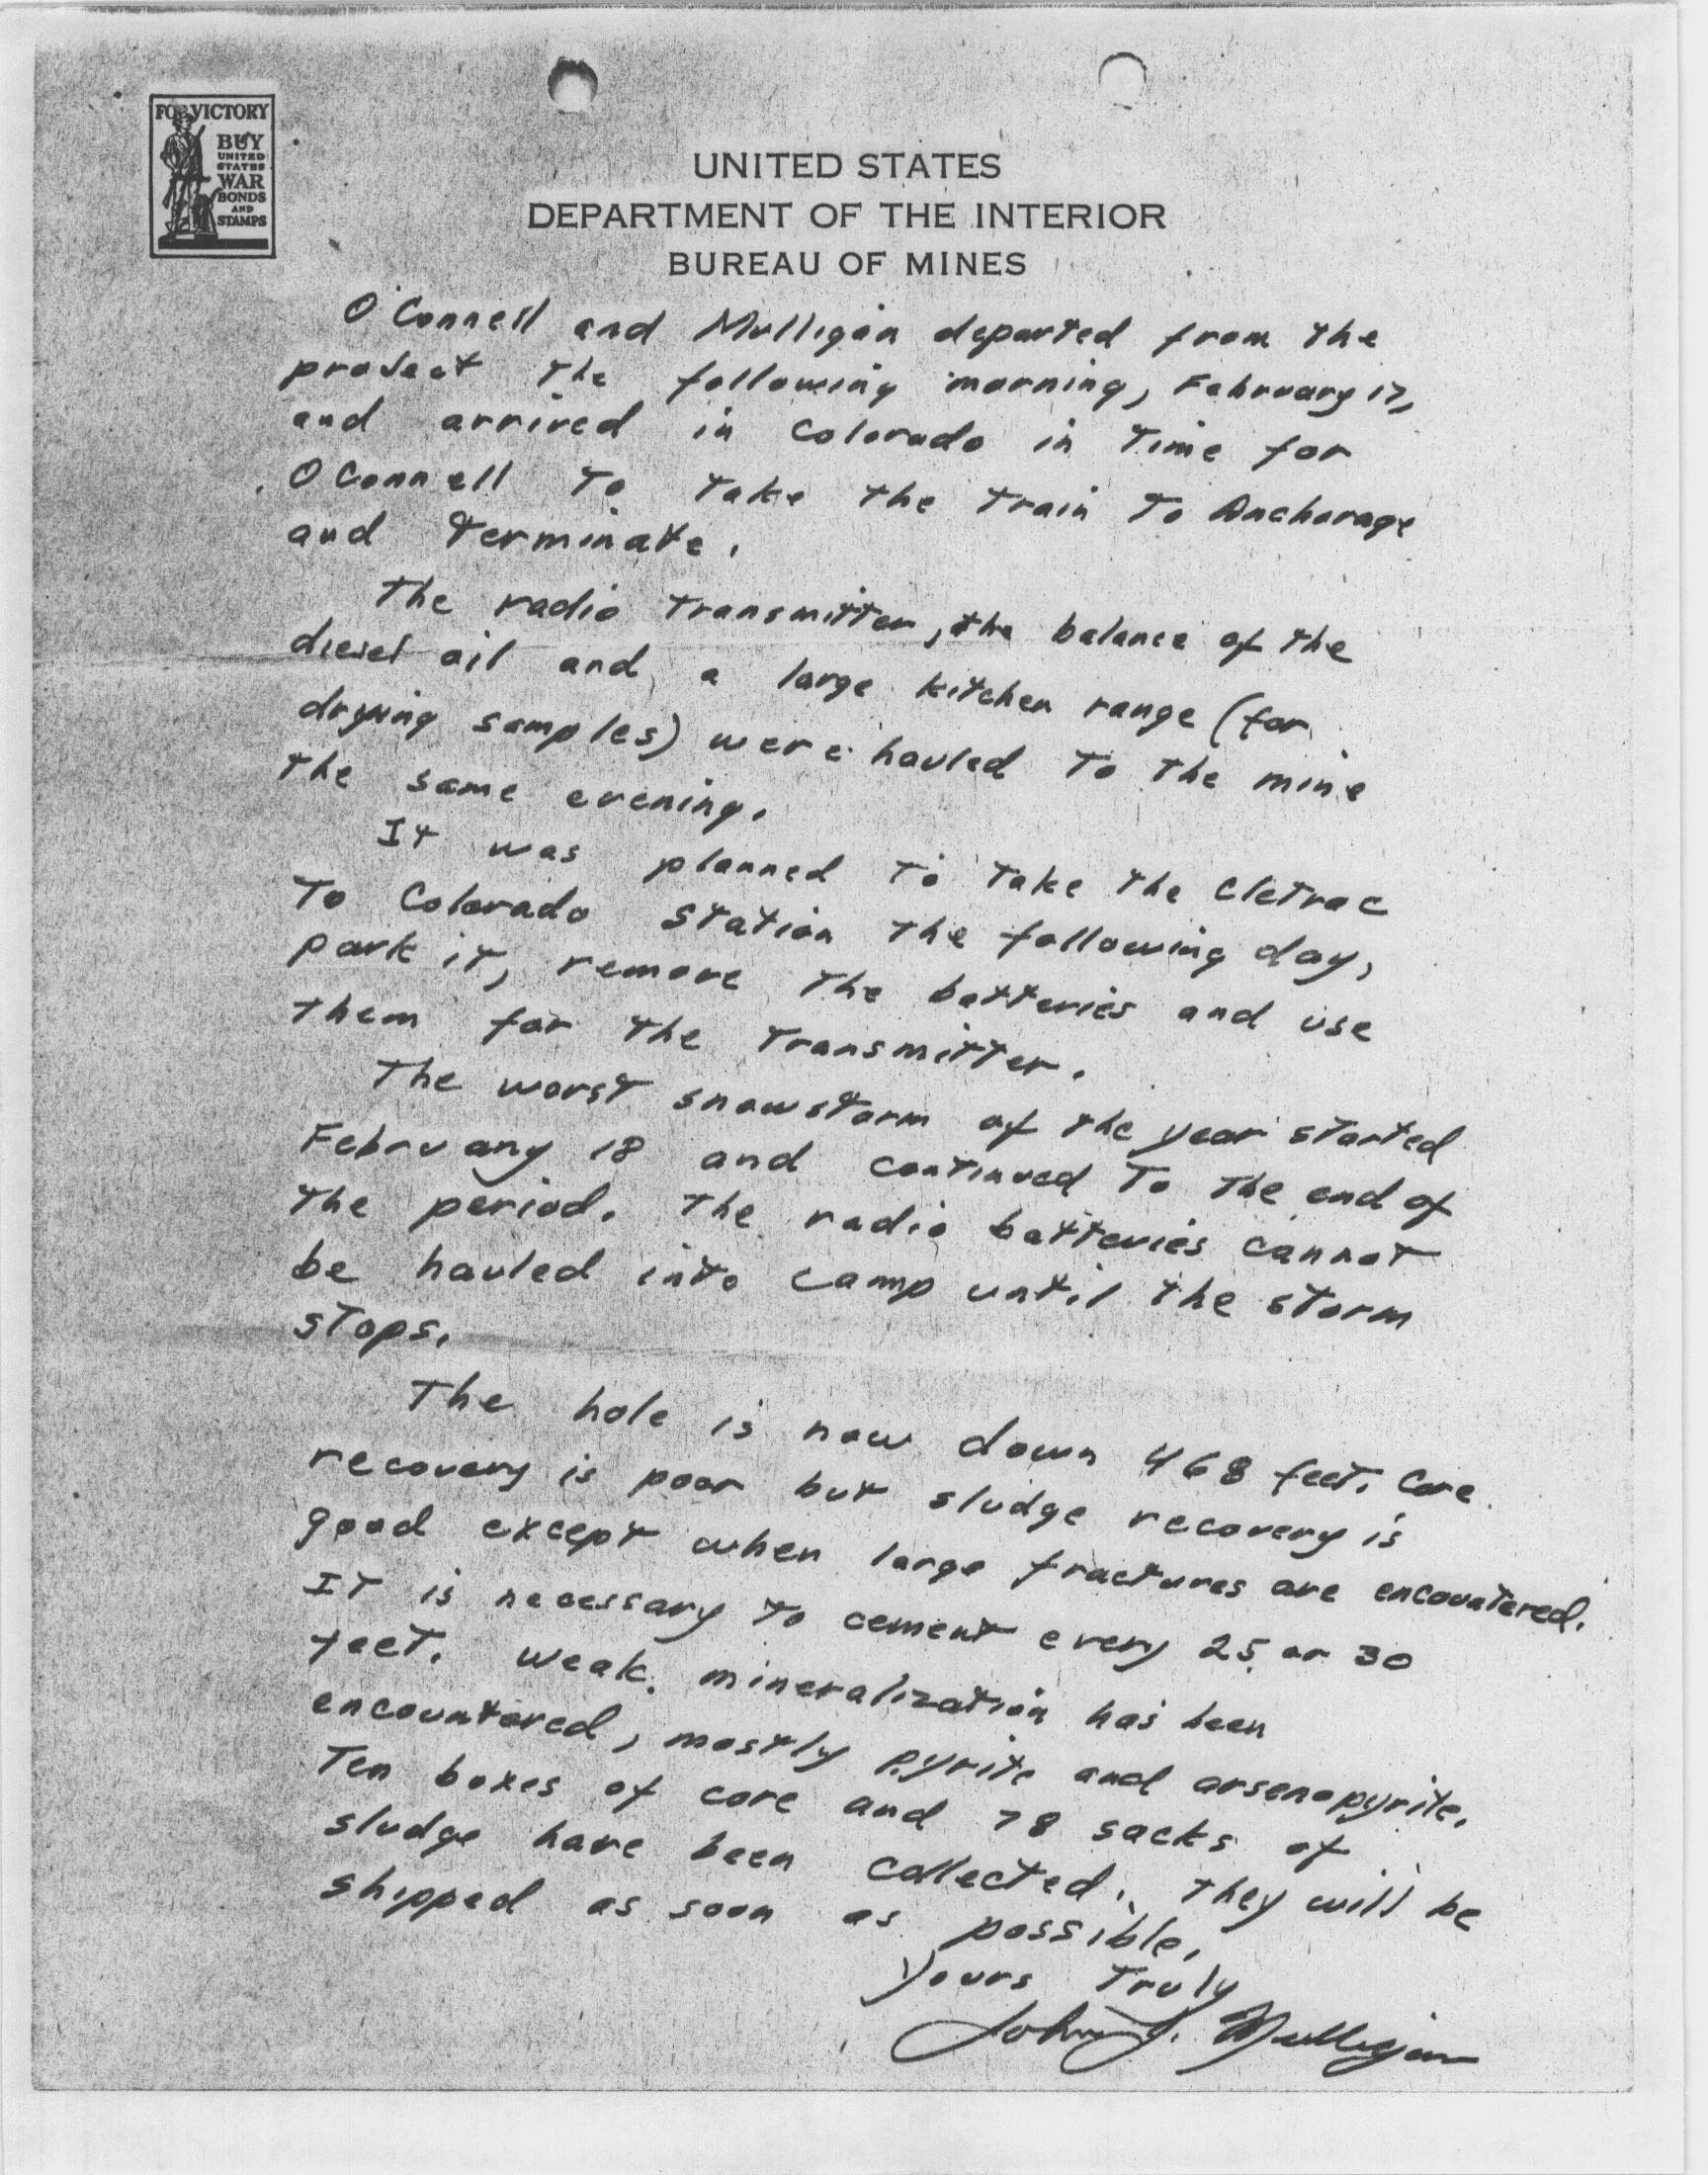 FOR VICTORY
BUY
UNITED
STATES
WAR
BONDS
AND
STAMPS
UNITED STATES
DEPARTMENT OF THE INTERIOR
BUREAU OF MINES
O'Connell and Mulligan departed from the
project the following morning, February 17,
and arrived in Colorado in time for
O'Connell to take the train to Anchorage
and terminate.
The radio transmitter, the balance of the
diesel oil and a large kitchen range (for
drying samples) were hauled to the mine
the same evening.
It was planned to take the Cletrac
to Colorado Station the following day,
park it, remove the batteries and use
them for the transmitter.
The worst snowstorm of the year started
February 18 and continued to the end of
the period. The radio batteries cannot
be hauled into camp until the storm
stops.
The hole is now down 468 feet. Core
recovery is poor but sludge recovery is
good except when large fractures are encountered.
It is necessary to cement every 25 or 30
feet. Weak mineralization has been
encountered, mostly pyrite and arsenopyrite.
Ten boxes of core and 78 sacks of
sludge have been collected. They will be
shipped as soon as possible.
Yours Truly
John J. Mulligan